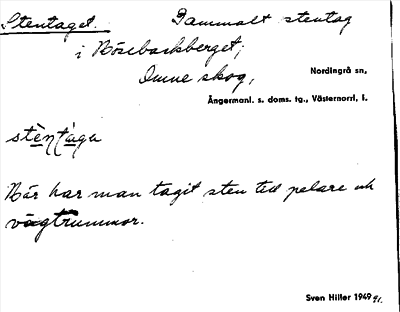 Stentaget. Gammalt stentag
i Rösebacksberget;
Omne skog,
Nordingrå sn,
Ångermanl. s. doms. tg., Västernorrl, l.
stèntàgu
Här har man tagit sten till pelare och
vägtrummor.
Sven Hiller 1949